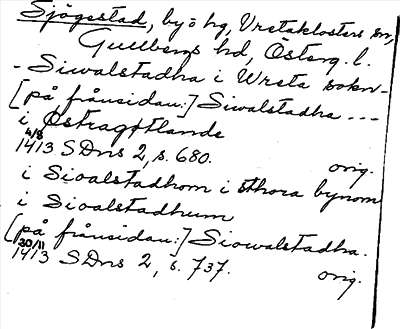 Sjögestad, by o hg, Vretaklosters sn,
Gullbergs hd, Österg. l.
- Siwalstadha i Wreta sokn -
[på frånsidan:] Siwalstadha ---
i Østragøtlande
4/8 1413 SDns 2, s. 680. orig.
i Sioalstadhom i sthora bynom
i Sioalstadhum
[på frånsidan:] Siowalstadha.
30/11 1413 SDns 2, s. 737. orig.